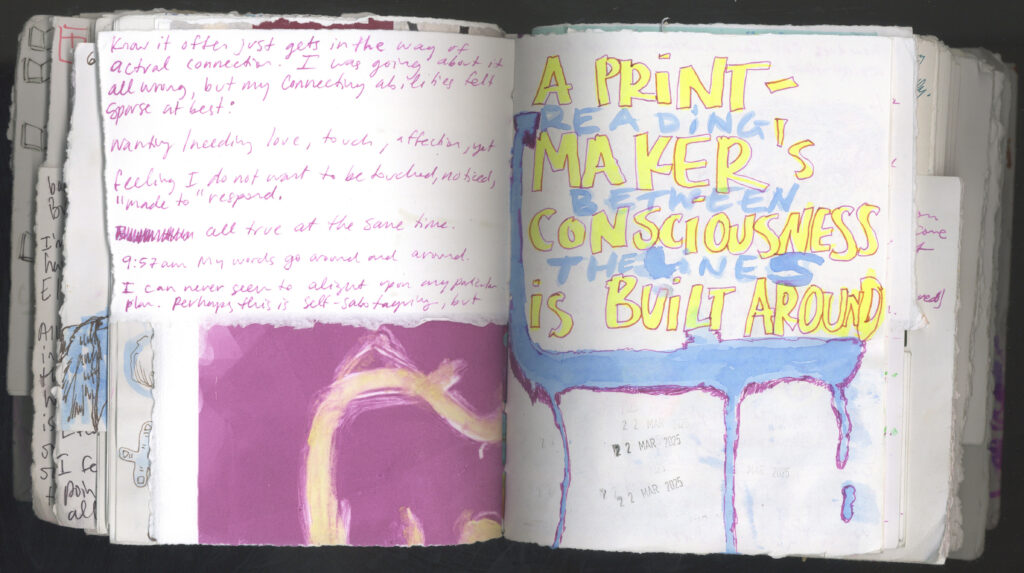 Know it often just gets in the way of
actual connection. I was going about it
all wrong, but my connecting abilities felt
sparse at best:
wanting/needing love, touch, affection, yet
feeling I do not want to be touched, noticed,
"made to" respond.
all true at the same time.
9:57am My words go around and around.
I can never seem to alight upon any particular
plan. Perhaps this is self-sabotaging, but
A PRINT-
READING
MAKER'S
BETWEEN
CONSCIOUSNESS
THE LINES
is BUILT AROUND
22 MAR 2025
22 MAR 2025
22 MAR 2025
MAR 2025